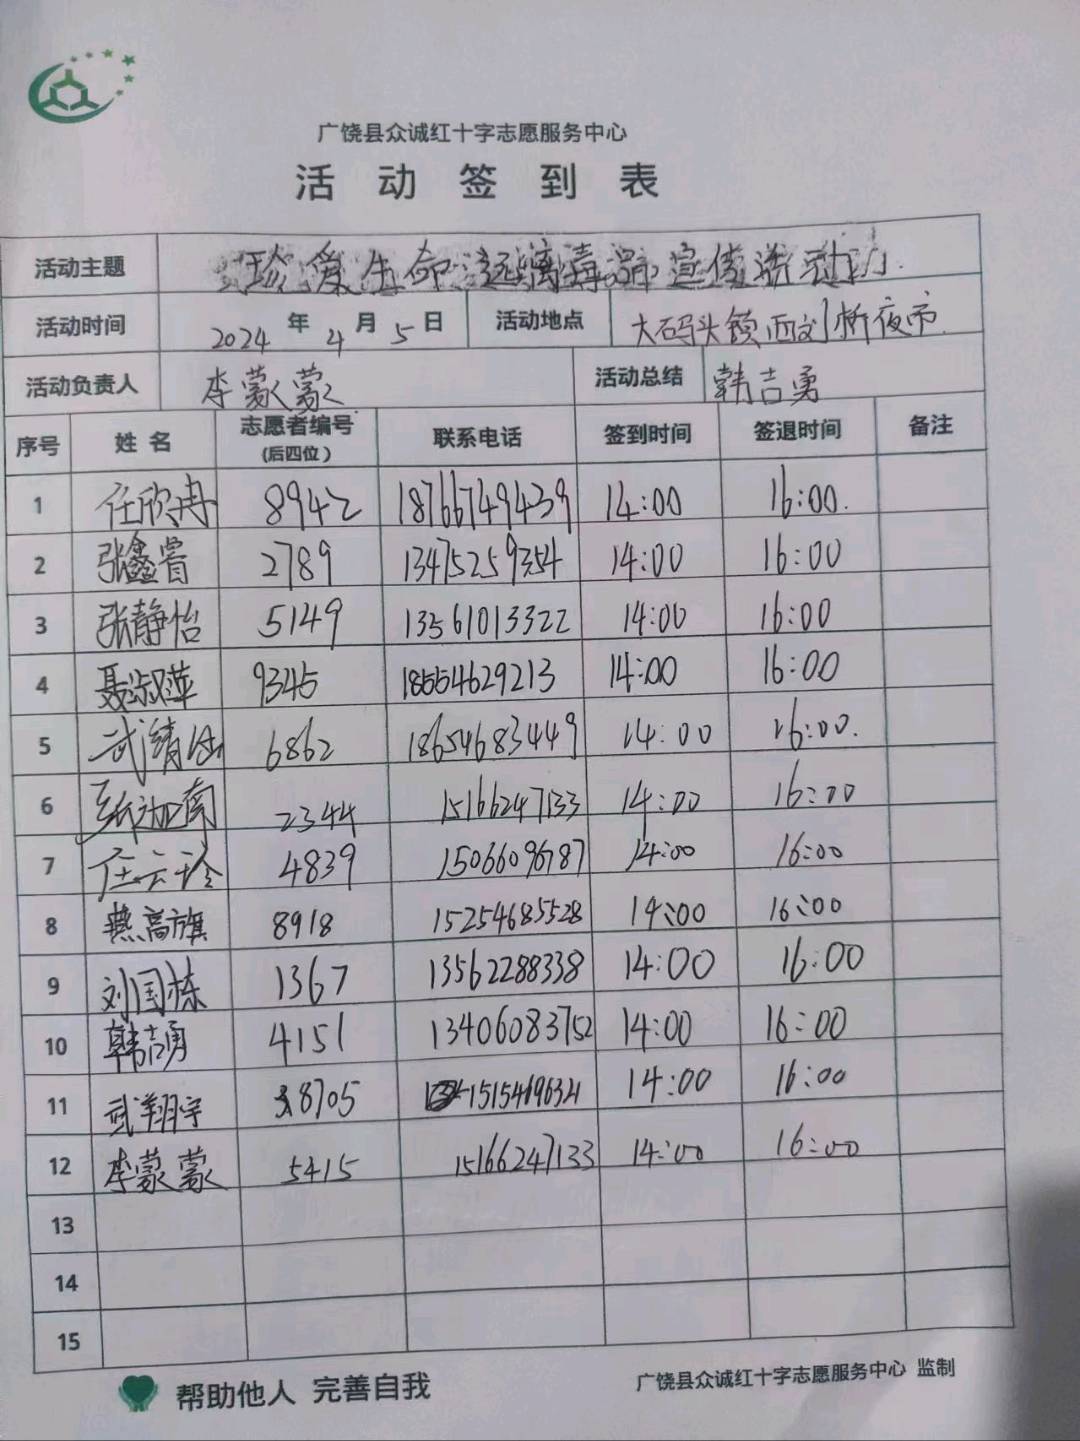 广饶县众诚红十字志愿服务中心
活动签到表
活动主题 珍爱生命 远离毒品 宣传
活动时间 2024年4月5日 活动地点 大码头镇西刘桥夜市
活动负责人 李蒙蒙 活动总结 韩吉勇
序号 姓名 志愿者编号(后四位) 联系电话 签到时间 签退时间 备注
1 任欣冉 8942 18766749439 14:00 16:00.
2 张鑫睿 2789 13475259354 14:00 16:00
3 张静怡 5149 13561013322 14:00 16:00
4 聂淑萍 9345 18554629213 14:00 16:00
5 武 6862 18654683449 14:00 16:00.
6 2344 15166247133 14:00 16:00
7 任云 4839 15066096787 14:00 16:00
8 燕高旗 8918 15254685528 14:00 16:00
9 刘国栋 1367 13562288338 14:00 16:00
10 韩吉勇 4151 13406083752 14:00 16:00
11 武翔宇 8705 14:00 16:00
12 李蒙蒙 5415 15166247133 14:00 16:00
13
14
15
帮助他人 完善自我
广饶县众诚红十字志愿服务中心 监制